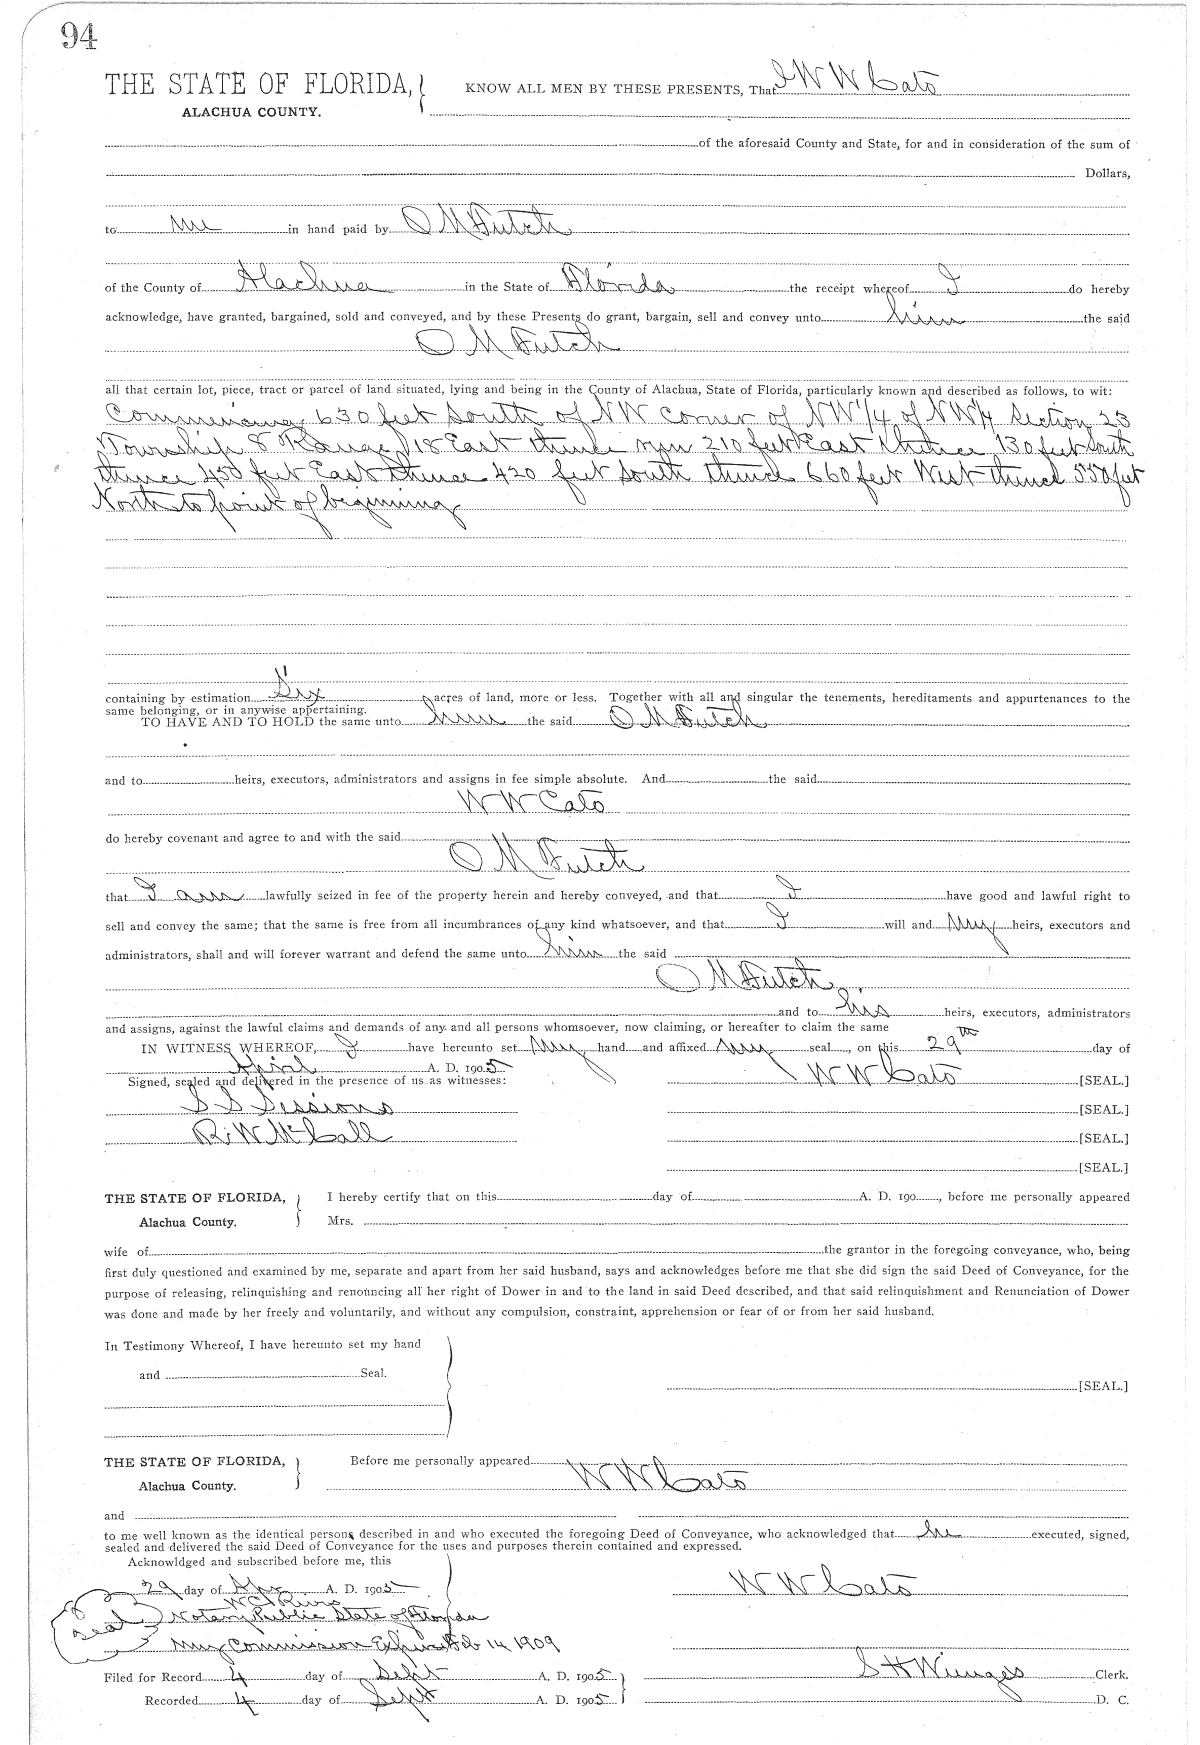 94
THE STATE OF FLORIDA, KNOW ALL MEN BY THESE PRESENTS, That I W W Cato
ALACHUA COUNTY.
of the aforesaid County and State, for and in consideration of the sum of
Dollars,
to me in hand paid by O M Futch
of the County of Alachua in the State of Florida the receipt whereof I do hereby
acknowledge, have granted, bargained, sold and conveyed, and by these Presents do grant, bargain, sell and convey unto him the said
O M Futch
all that certain lot, piece, tract or parcel of land situated, lying and being in the County of Alachua, State of Florida, particularly known and described as follows, to wit:
Commencing 630 feet South of NW corner of NW1/4 of NW1/4 Section 23
Township 8 Range 18 East thence run 210 feet East thence 130 feet South
thence 450 feet East thence 420 feet South thence 660 feet West thence 550 feet
North to point of beginning
containing by estimation Six acres of land, more or less. Together with all and singular the tenements, hereditaments and appurtenances to the
same belonging, or in anywise appertaining.
TO HAVE AND TO HOLD the same unto him the said O M Futch
and to heirs, executors, administrators and assigns in fee simple absolute. And the said
W W Cato
do hereby covenant and agree to and with the said
O M Futch
that I am lawfully seized in fee of the property herein and hereby conveyed, and that I have good and lawful right to
sell and convey the same; that the same is free from all incumbrances of any kind whatsoever, and that I will and my heirs, executors and
administrators, shall and will forever warrant and defend the same unto him the said
O M Futch
and to his heirs, executors, administrators
and assigns, against the lawful claims and demands of any and all persons whomsoever, now claiming, or hereafter to claim the same
IN WITNESS WHEREOF, I have hereunto set my hand and affixed my seal, on this 29th day of
April A. D. 1905 W W Cato [SEAL.]
Signed, sealed and delivered in the presence of us as witnesses:
S S Sessions [SEAL.]
R W McCall [SEAL.]
[SEAL.]
THE STATE OF FLORIDA, I hereby certify that on this day of A. D. 190 , before me personally appeared
Alachua County. Mrs.
wife of the grantor in the foregoing conveyance, who, being
first duly questioned and examined by me, separate and apart from her said husband, says and acknowledges before me that she did sign the said Deed of Conveyance, for the
purpose of releasing, relinquishing and renouncing all her right of Dower in and to the land in said Deed described, and that said relinquishment and Renunciation of Dower
was done and made by her freely and voluntarily, and without any compulsion, constraint, apprehension or fear of or from her said husband.
In Testimony Whereof, I have hereunto set my hand
and Seal.
[SEAL.]
THE STATE OF FLORIDA, Before me personally appeared
Alachua County. W W Cato
and
to me well known as the identical persons described in and who executed the foregoing Deed of Conveyance, who acknowledged that he executed, signed,
sealed and delivered the said Deed of Conveyance for the uses and purposes therein contained and expressed.
Acknowldged and subscribed before me, this
29 day of Apr A. D. 1905 W W Cato
Seal Notary Public State of Florida
My Commission Expires Feb 14 1909
Filed for Record 4 day of Sept A. D. 1905 S H Wienges Clerk.
Recorded 4 day of Sept A. D. 1905 D. C.